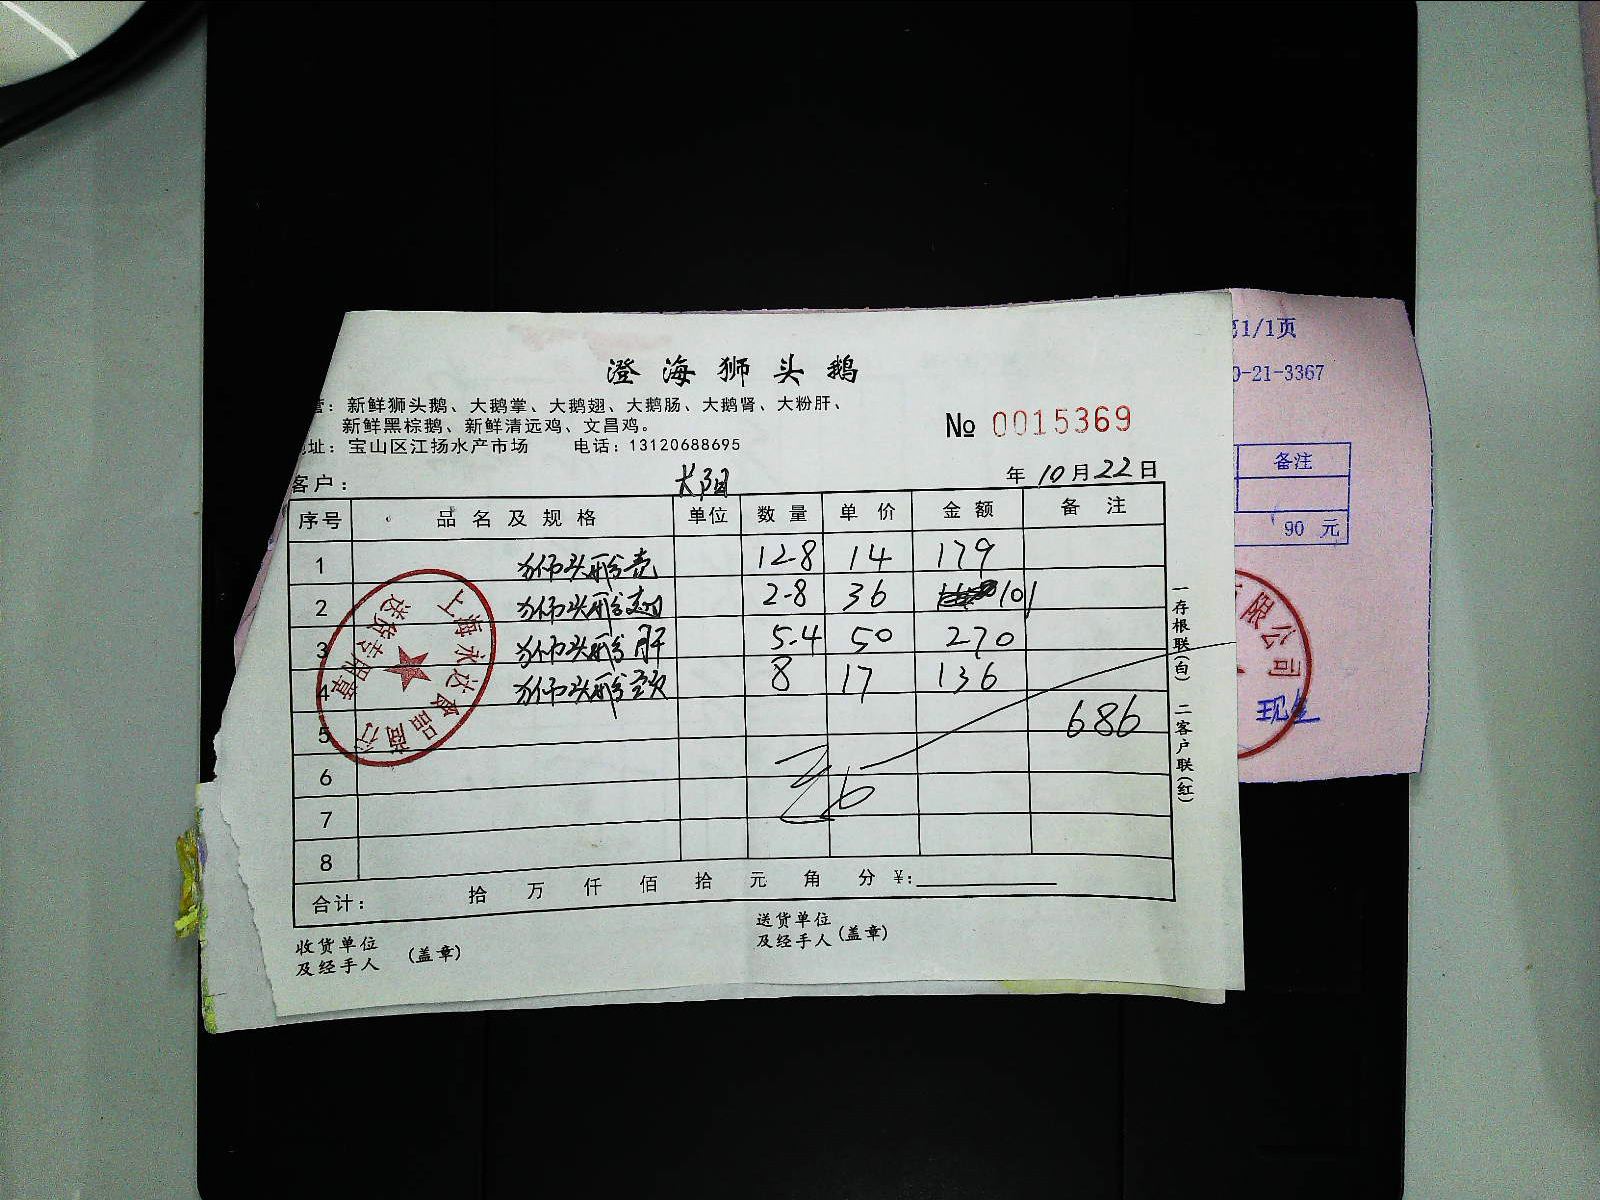 澄海狮头鹅
营：新鲜狮头鹅、大鹅掌、大鹅翅、大鹅肠、大鹅肾、大粉肝、
新鲜黑棕鹅、新鲜清远鸡、文昌鸡。
址：宝山区江扬水产市场 电话：13120688695
№ 0015369
客户：
年 10月22日
序号 品名及规格 单位 数量 单价 金额 备注
1 狮头鹅壳 12-8 14 179
2 狮头鹅翅 2-8 36 101
3 狮头鹅肝 5-4 50 270
4 狮头鹅颈 8 17 136
5 686
6
7
8
合计： 拾 万 仟 佰 拾 元 角 分 ¥：
收货单位
及经手人 （盖章）
送货单位
及经手人（盖章）
一存根联（白） 二客户联（红）
上海永达食品商行
送货专用章
第1/1页
0-21-3367
备注
90 元
有限公司